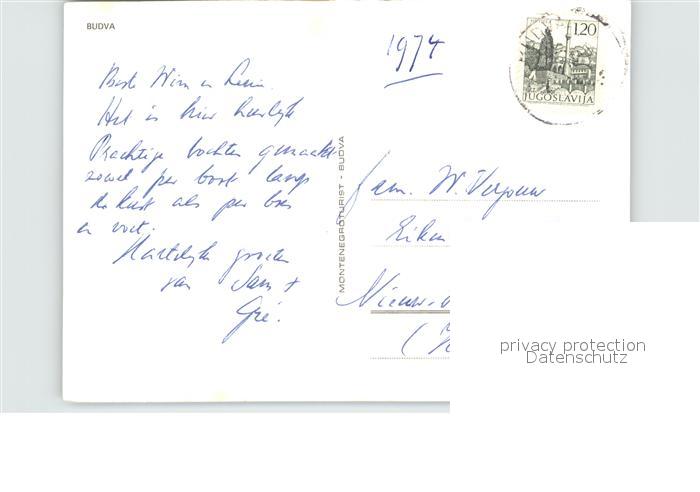 BUDVA
1974
1,20
JUGOSLAVIJA
Beste Wim en
Het is hier heerlijk
Prachtige tochten gemaakt
zowel per boot langs
de kust als per bus
en voet.
Hartelijke groeten
van Sam +
Gré.
MONTENEGROTURIST - BUDVA
fam. W. Verjouw
Nieuw-
privacy protection
Datenschutz